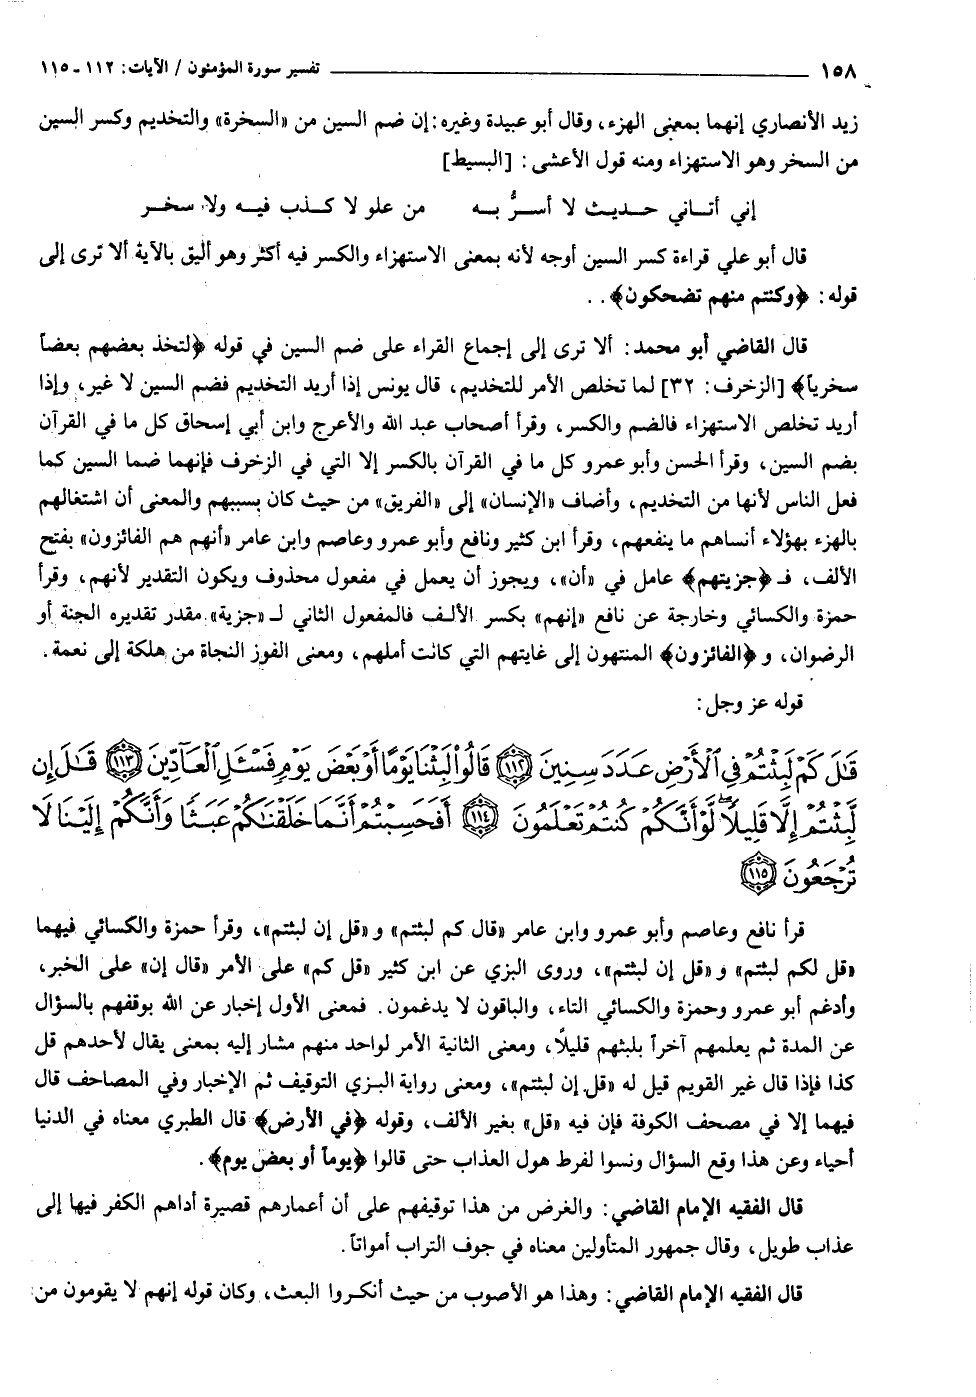 ١٥٨ تفسير سورة المؤمنون / الآيات: ١١٢ - ١١٥
زيد الأنصاري إنهما بمعنى الهزء، وقال أبو عبيدة وغيره: إن ضم السين من «السخرة» والتخديم وكسر السين
من السخر وهو الاستهزاء ومنه قول الأعشى: [البسيط]
إني أتــاني حــديــث لا أســرُّ بــه من علو لا كــذب فيــه ولا سخــر
قال أبو علي قراءة كسر السين أوجه لأنه بمعنى الاستهزاء والكسر فيه أكثر وهو أليق بالآية ألا ترى إلى
قوله: ﴿وكنتم منهم تضحكون﴾ . .
قال القاضي أبو محمد: ألا ترى إلى إجماع القراء على ضم السين في قوله ﴿لتخذ بعضهم بعضاً
سخرياً﴾ [الزخرف: ٣٢] لما تخلص الأمر للتخديم، قال يونس إذا أريد التخديم فضم السين لا غير، وإذا
أريد تخلص الاستهزاء فالضم والكسر، وقرأ أصحاب عبد الله والأعرج وابن أبي إسحاق كل ما في القرآن
بضم السين، وقرأ الحسن وأبو عمرو كل ما في القرآن بالكسر إلا التي في الزخرف فإنهما ضما السين كما
فعل الناس لأنها من التخديم، وأضاف «الإنسان» إلى «الفريق» من حيث كان بسببهم والمعنى أن اشتغالهم
بالهزء بهؤلاء أنساهم ما ينفعهم، وقرأ ابن كثير ونافع وأبو عمرو وعاصم وابن عامر «أنهم هم الفائزون» بفتح
الألف، فـ ﴿جزيتهم﴾ عامل في «أن»، ويجوز أن يعمل في مفعول محذوف ويكون التقدير لأنهم، وقرأ
حمزة والكسائي وخارجة عن نافع «إنهم» بكسر الألـف فالمفعول الثاني لـ «جزية» مقدر تقديره الجنة أو
الرضوان، و ﴿الفائزون﴾ المنتهون إلى غايتهم التي كانت أملهم، ومعنى الفوز النجاة من هلكة إلى نعمة.
قوله عز وجل:
قَٰلَ كَمْ لَبِثْتُمْ فِي ٱلْأَرْضِ عَدَدَ سِنِينَ ١١٢ قَالُواْ لَبِثْنَا يَوْمًا أَوْ بَعْضَ يَوْمٍ فَسْـَٔلِ ٱلْعَآدِّينَ ١١٣ قَٰلَ إِن
لَّبِثْتُمْ إِلَّا قَلِيلًا ۖ لَّوْ أَنَّكُمْ كُنتُمْ تَعْلَمُونَ ١١٤ أَفَحَسِبْتُمْ أَنَّمَا خَلَقْنَٰكُمْ عَبَثًا وَأَنَّكُمْ إِلَيْنَا لَا
تُرْجَعُونَ ١١٥
قرأ نافع وعاصم وأبو عمرو وابن عامر «قال كم لبثتم» و «قل إن لبثتم»، وقرأ حمزة والكسائي فيهما
«قل لكم لبثتم» و «قل إن لبثتم»، وروى البزي عن ابن كثير «قل كم» على الأمر «قال إن» على الخبر،
وأدغم أبو عمرو وحمزة والكسائي التاء، والباقون لا يدغمون. فمعنى الأول إخبار عن الله بوقفهم بالسؤال
عن المدة ثم يعلمهم آخراً بلبثهم قليلًا، ومعنى الثانية الأمر لواحد منهم مشار إليه بمعنى يقال لأحدهم قل
كذا فإذا قال غير القويم قيل له «قل إن لبثتم»، ومعنى رواية البـزي التوقيف ثم الإخبار وفي المصاحف قال
فيهما إلا في مصحف الكوفة فإن فيه «قل» بغير الألف، وقوله ﴿في الأرض﴾ قال الطبري معناه في الدنيا
أحياء وعن هذا وقع السؤال ونسوا لفرط هول العذاب حتى قالوا ﴿يوماً أو بعض يوم﴾.
قال الفقيه الإمام القاضي: والغرض من هذا توقيفهم على أن أعمارهم قصيرة أداهم الكفر فيها إلى
عذاب طويل، وقال جمهور المتأولين معناه في جوف التراب أمواتاً.
قال الفقيه الإمام القاضي: وهذا هو الأصوب من حيث أنكـروا البعث، وكان قوله إنهم لا يقومون من